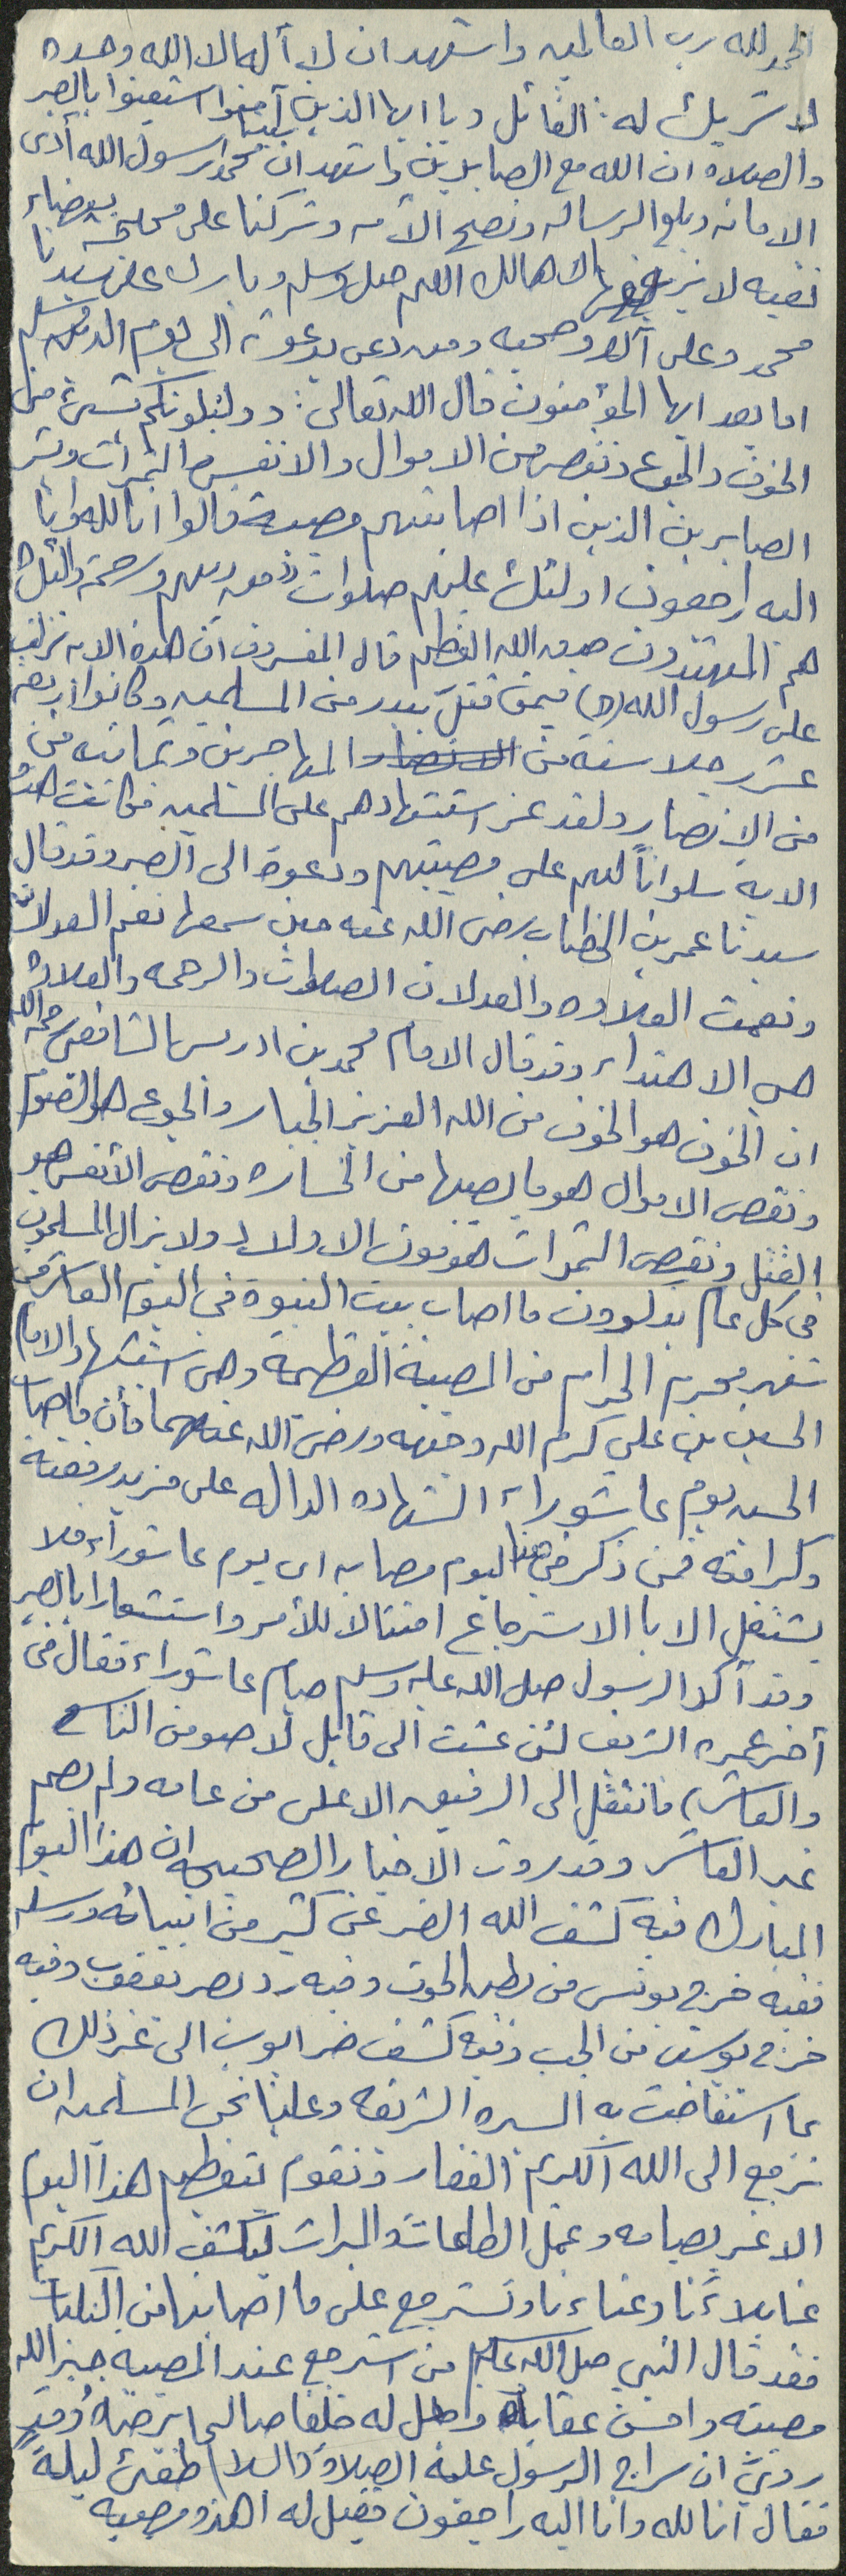 الحمد لله رب العالمين واشهد ان لا أله الا الله وحده
لا شريك له: القائل ويا ايها الذين آمنوا استعينوا بالصبر
والصلاه ان الله مع الصابرين واشهد ان نبينا محمدا رسول الله أدى
الامانه وبلغ الرساله ونصح الأمه وتركنا على محجة بيضاء
نقيه لا يزيغ عنها الا هالك اللهم صل وسلم وبارك على سيدنا
محمد وعلى آله وصحبه ومن دعى بدعوته الى يوم الدين وسلم
اما بعد ايها المؤمنون قال الله تعالى: ولنبلونكم بشيء من
الخوف والجوع ونقص من الاموال والانفس والثمرات وبشر
الصابرين الذين اذا اصابتهم مصيبة قالوا انا لله وانا
اليه راجعون اولئك عليهم صلوات من ربهم ورحمة واولئك
هم المهتدون صدق الله العظيم قال المفسرون ان هذه الايه نزلت
على رسول الله (ص) فيمن قتل ببدر من المسلمين وكانوا اربعه
عشر رجلا سته من المهاجرين وثمانيه من
من الانصار ولقد عز استشهادهم على المسلمين فكانت هذه
الايه سلواناً لهم على مصيبتهم ودعوة الى الصبر وقد قال
سيدنا عمر بن الخطاب رضى الله عنه حين سمعها نعم العدلان
ونعمت العلاوه والعدلان الصلوات والرحمه والعلاوه
هي الاهتداء وقد قال الامام محمد بن ادريس الشافعى رحمه الله
ان الخوف هو الخوف من الله العزيز الجبار والجوع هو الصوم
ونقص الاموال هو ما يصيبها من الخساره ونقص الأنفس هو
القتل ونقص الثمرات هو موت الاولاد ولا يزال المسلمون
فى كل عام يذكرون ما اصاب بيت النبوة فى اليوم العاشر من
شهر محرم الحرام من المصيبة العظيمة وهى استشهاد الامام
الحسين بن علي كرم الله وجهه ورضى الله عنهما فأن ما اصاب
الحسين يوم عاشوراء الشهاده الداله على مزيد رفعته
وكرامته فمن ذكر في هذا اليوم مصابه اى يوم عاشوراء فلا
يشتغل الا بالاسترجاع امتثالا للأمر واستشعارا بالصبر
وقد أكد الرسول صلى الله عليه وسلم صيام عاشوراء فقال فى
أخر عمره الشريف لئن عشت الى قابل لاصومن التاسع
والعاشر) فانتقل الى الرفيق الاعلى من عامه ولم يصم
غير العاشر وقد روت الاخبار الصحيحه ان هذا اليوم
المبارك فيه كشف الله الضر عن كثير من انبيائه ورسله
ففيه خرج يونس من بطن الحوت وفيه رد بصر يعقوب وفيه
خرج يوسف من الجب وفيه كشف ضر ايوب الى غير ذلك
مما استفاضت به السيره الشريفه وعلينا نحن المسلمين ان
نرجع الى الله الكريم الغفار ونقوم بتعظيم هذا اليوم
الاغر بصيامه وعمل الطاعات والمبرات ليكشف الله الكريم
عنا بلاءنا وعناءنا ونسترجع على ما اصابنا من النكبات
فقد قال النبي صلى الله عليه وسلم من استرجع عند المصيبه جبر الله
مصيبته واحسن عقباه وجعل له خلفا صالحا يرضاهُ وقد
رويَ ان سراج الرسول عليه الصلاة والسلام طفئ ليلةً
فقال انا لله وانا اليه راجعون فقيل له اهذه مصيبه